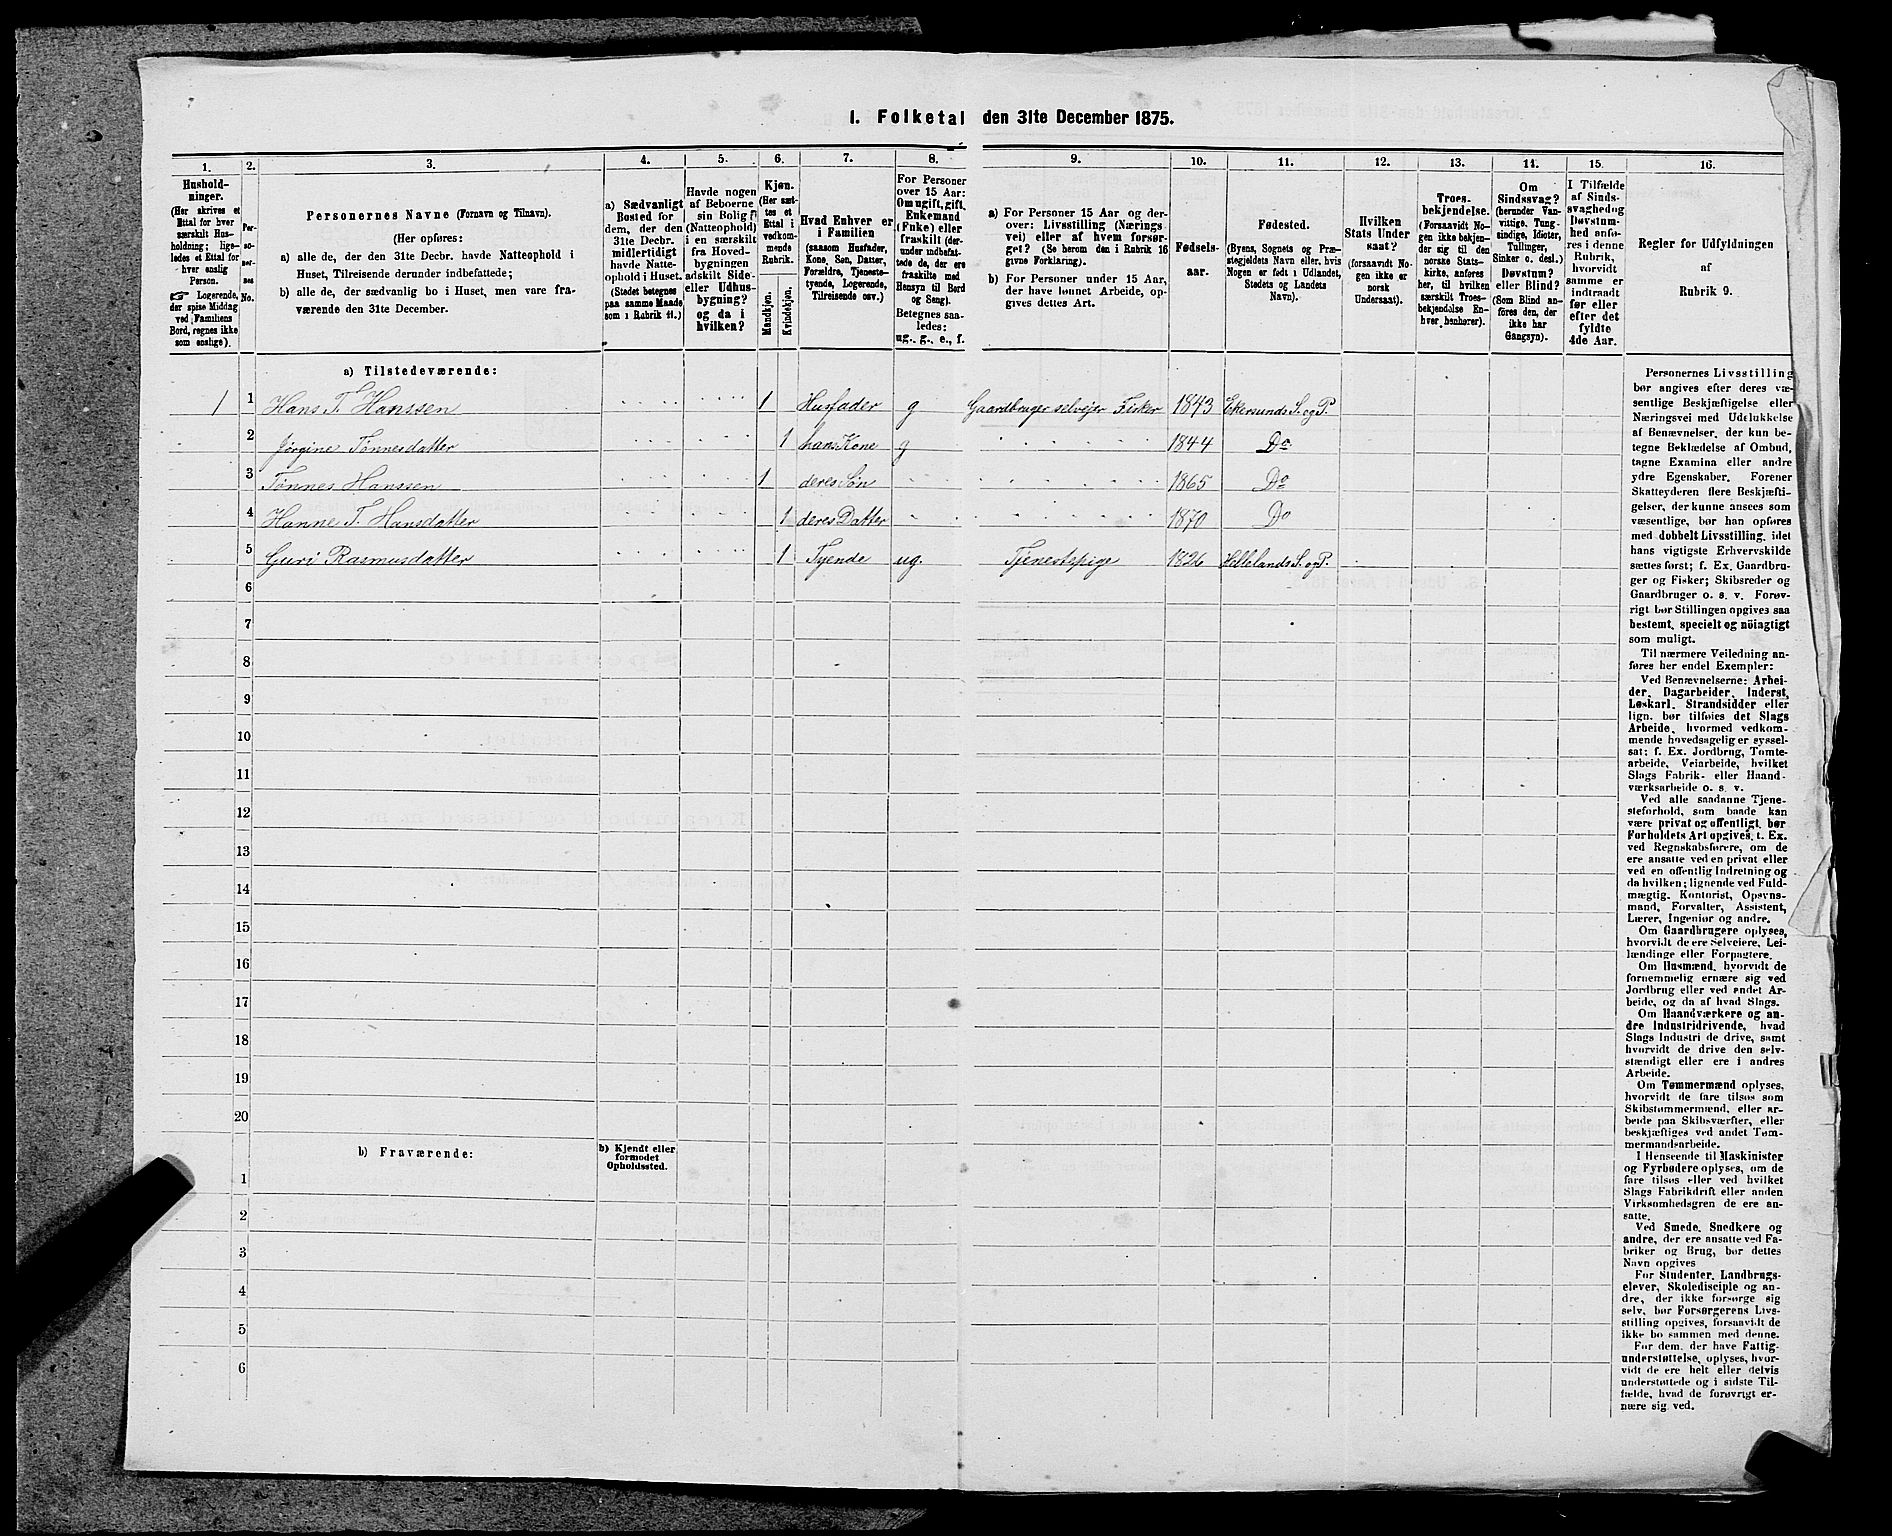 I. Folketal den 31te December 1875.
1. 2. 3. 4. 5. 6. 7. 8. 9. 10. 11. 12. 13. 14. 15. 16.
Hushold-
ninger.
(Her skrives et
Ettal for hver
særskilt Hus-
holdning; lige-
ledes et Ettal for
hver enslig
Person.
☞ Logerende,
der spise Middag
ved Familiens
Bord, regnes ikke
som enslige).
Per-
so-
ner-
nes
No.
Personernes Navne (Fornavn og Tilnavn).
(Her opføres:
a) alle de, der den 31te Decbr. havde Natteophold i
Huset, Tilreisende derunder indbefattede;
b) alle de, der sædvanlig bo i Huset, men vare fra-
værende den 31te December.
a) Sædvanligt
Bosted for
dem, der den
31te Decbr.
midlertidigt
havde Natte-
ophold i Huset.
(Stedet betegnes
paa samme Maade
som i Rubrik 11.)
Havde nogen
af Beboerne
sin Bolig
(Natteophold)
i en særskilt
fra Hoved-
bygningen
adskilt Side-
eller Udhus-
bygning?
og da i
hvilken?
Kjøn.
(Her sæt-
tes et
Ettal i
vedkom-
mende
Rubrik.
Mandkjøn.
Kvindekjøn.
Hvad Enhver er
i Familien
(saasom Husfader,
Kone, Søn, Datter,
Forældre, Tjeneste-
tyende, Logerende,
Tilreisende osv.)
For Personer
over 15 Aar:
Om ugift, gift,
Enkemand
(Enke) eller
fraskilt (der-
under indbefat-
tede de, der ere
fraskilte med
Hensyn til Bord
og Seng).
Betegnes saa-
ledes:
ug., g., e., f.
a) For Personer 15 Aar og der-
over: Livsstilling (Nærings-
vei) eller af hvem forsør-
get? (Se herom den i Rubrik 16
givne Forklaring).
b) For Personer under 15 Aar,
der have lønnet Arbeide, op-
gives dettes Art.
Fødsels-
aar.
Fødested.
(Byens, Sognets og Præ-
stegjeldets Navn eller, hvis
Nogen er født i Udlandet,
Stedets og Landets
Navn).
Hvilken
Stats Under
saat?
(forsaavidt No-
gen ikke er
norsk
Undersaat).
Troes-
bekjendelse.
(Forsaavidt No-
gen ikke bekjen-
der sig til den
norske Stats-
kirke, anføres
her, til hvilken
særskilt Troes-
bekjendelse En-
hver henhører).
Om
Sindssvag?
(herunder Van-
vittige, Tung-
sindige, Idioter,
Tullinger,
Sinker o. desl.)
Døvstum?
eller Blind?
(Som Blind an-
føres den, der
ikke har
Gangsyn).
I Tilfælde
af Sinds-
svaghed og
Døvstum-
hed anfø-
res i denne
Rubrik,
hvorvidt
samme er
indtraadt
før eller
efter det
fyldte
4de Aar.
Regler for Udfyldningen
af
Rubrik 9.
a) Tilstedeværende:
1 1 Hans T. Hanssen 1 Husfader g Gaardbruger selveier Fisker 1843 Ekersunds S. og P.
2 Jørgine Tønnesdatter 1 hans Kone g 1844 Do
3 Tønnes Hanssen 1 deres Søn 1865 Do
4 Hanne T. Hansdatter 1 deres Datter 1870 Do
5 Guri Rasmusdatter 1 Tyende ug. Tjenestepige 1826 Hellelands S. og P.
6
7
8
9
10
11
12
13
14
15
16
17
18
19
20
b) Fraværende:
b) Kjendt eller
formodet
Opholdssted.
1
2
3
4
5
6
Personernes Livsstilling
bør angives efter deres væ-
sentlige Beskjæftigelse eller
Næringsvei med Udelukkelse
af Benævnelser, der kun be-
tegne Beklædelse af Ombud,
tagne Examina eller andre
ydre Egenskaber. Forener
Skatteyderen flere Beskjæfti-
gelser, der kunne ansees som
væsentlige, bør han opføres
med dobbelt Livsstilling, idet
hans vigtigste Erhvervskilde
sættes først; f. Ex. Gaardbru-
ger og Fisker; Skibsreder og
Gaardbruger o. s. v. Forøv-
rigt bør Stillingen opgives saa
bestemt, specielt og nöiagtigt
som muligt.
Til nærmere Veiledning an-
føres her endel Exempler:
Ved Benævnelserne: Arbei-
der, Dagarbeider, Inderst,
Løskarl, Strandsidder eller
lign. bør tilføies det Slags
Arbeide, hvormed vedkom-
mende hovedsagelig er syssel-
sat; f. Ex. Jordbrug, Tomte-
arbeide, Veiarbeide, hvilket
Slags Fabrik- eller Haand-
værksarbeide o. s. v.
Ved alle saadanne Tjene-
steforhold, som baade kan
være privat og offentligt, bør
Forholdets Art opgives, t. Ex.
ved Regnskabsførere, om de
ere ansatte ved en privat eller
ved en offentlig Indretning og
da hvilken; lignende ved Fuld-
mægtig, Kontorist, Opsyns-
mand, Forvalter, Assistent,
Lærer, Ingeniør og andre.
Om Gaardbrugere oplyses,
hvorvidt de ere Selveiere, Lei-
lændinge eller Forpagtere.
Om Husmænd, hvorvidt de
fornemmelig ernære sig ved
Jordbrug eller ved andet Ar-
beide, og da af hvad Slags.
Om Haandværkere og an-
dre Industridrivende, hvad
Slags Industri de drive, samt
hvorvidt de drive den selv-
stændigt eller ere i andres
Arbeide.
Om Tømmermænd oplyses,
hvorvidt de fare tilsøs som
Skibstømmermænd, eller ar-
beide paa Skibsværfter, eller
beskjæftiges ved andet Tøm-
mermandsarbeide.
I Henseende til Maskinister
og Fyrbødere oplyses, om de
fare tilsøs eller ved hvilket
Slags Fabrikdrift eller anden
Virksomhedsgren de ere an-
satte.
Ved Smede, Snedkere og
andre, der ere ansatte ved Fa-
briker og Brug, bør dettes
Navn opgives
For Studenter, Landbrugs-
elever, Skoledisciple og an-
dre, der ikke forsørge sig
selv, bør Forsørgerens Livs-
stilling opgives, forsaavidt de
ikke bo sammen med denne.
For dem, der have Fattig-
understøttelse, oplyses, hvor-
vidt de ere helt eller delvis
understøttede og i sidste Til-
fælde, hvad de forøvrigt er-
nære sig ved.